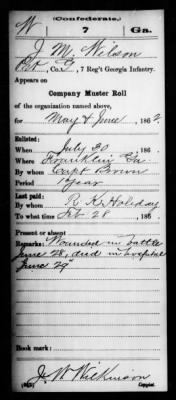 (Confederate.)
W 7 Ga.
J. M. Wilson
Pvt, Co. E, 7 Reg't Georgia Infantry.
Appears on
Company Muster Roll
of the organization named above,
for May & June, 1862.
Enlisted:
When July 30, 186 .
Where Franklin Ga.
By whom Capt Brown
Period 1 year
Last paid:
By whom R. K. Holiday
To what time Feb 28, 186 .
Present or absent
Remarks: Wounded in battle
June 28, died in hospital
June 29"
Book mark:
J. W. Wilkinson
Copyist.